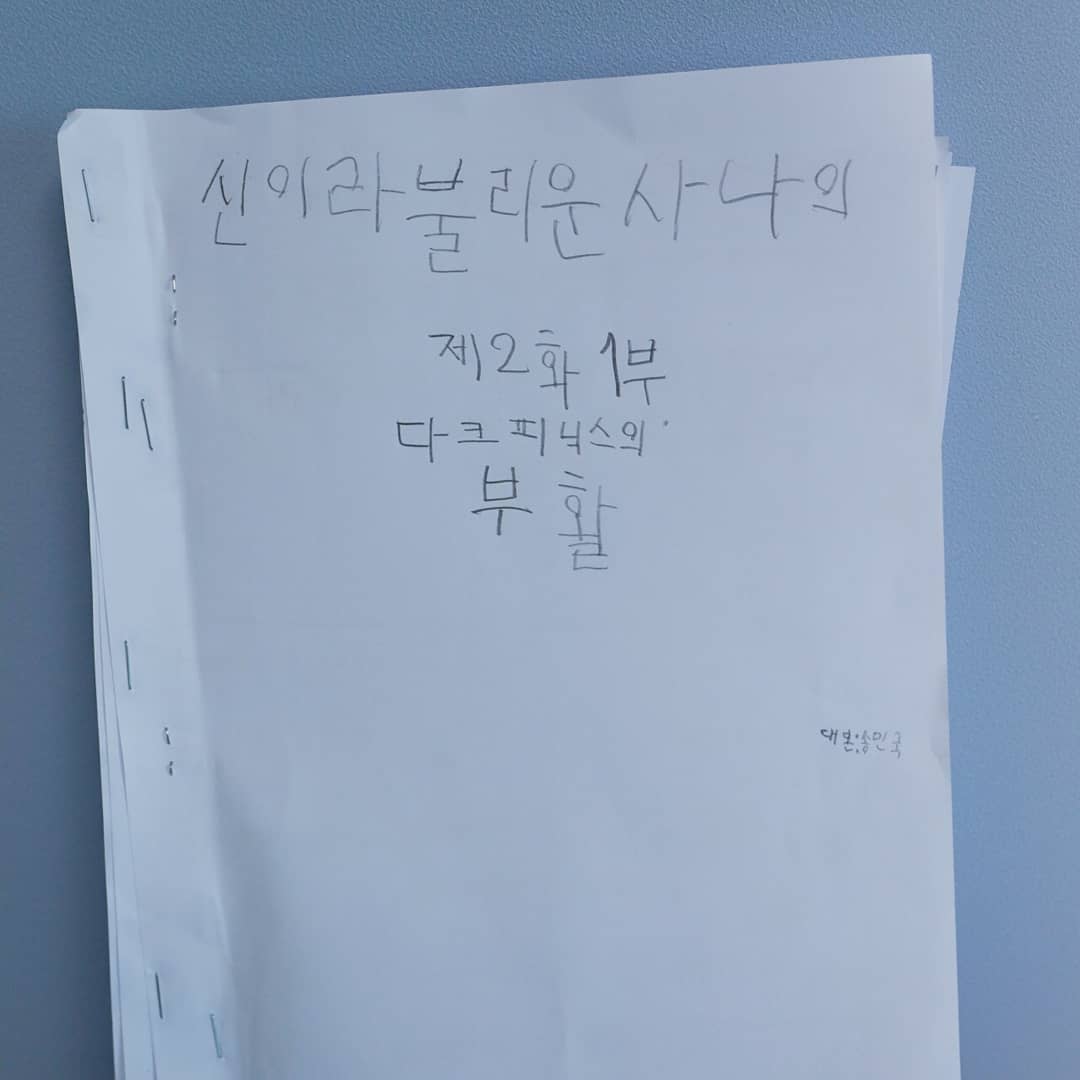 신이라불리운사나의
제2화 1부
다크피닉스의
부활
대본:송민국